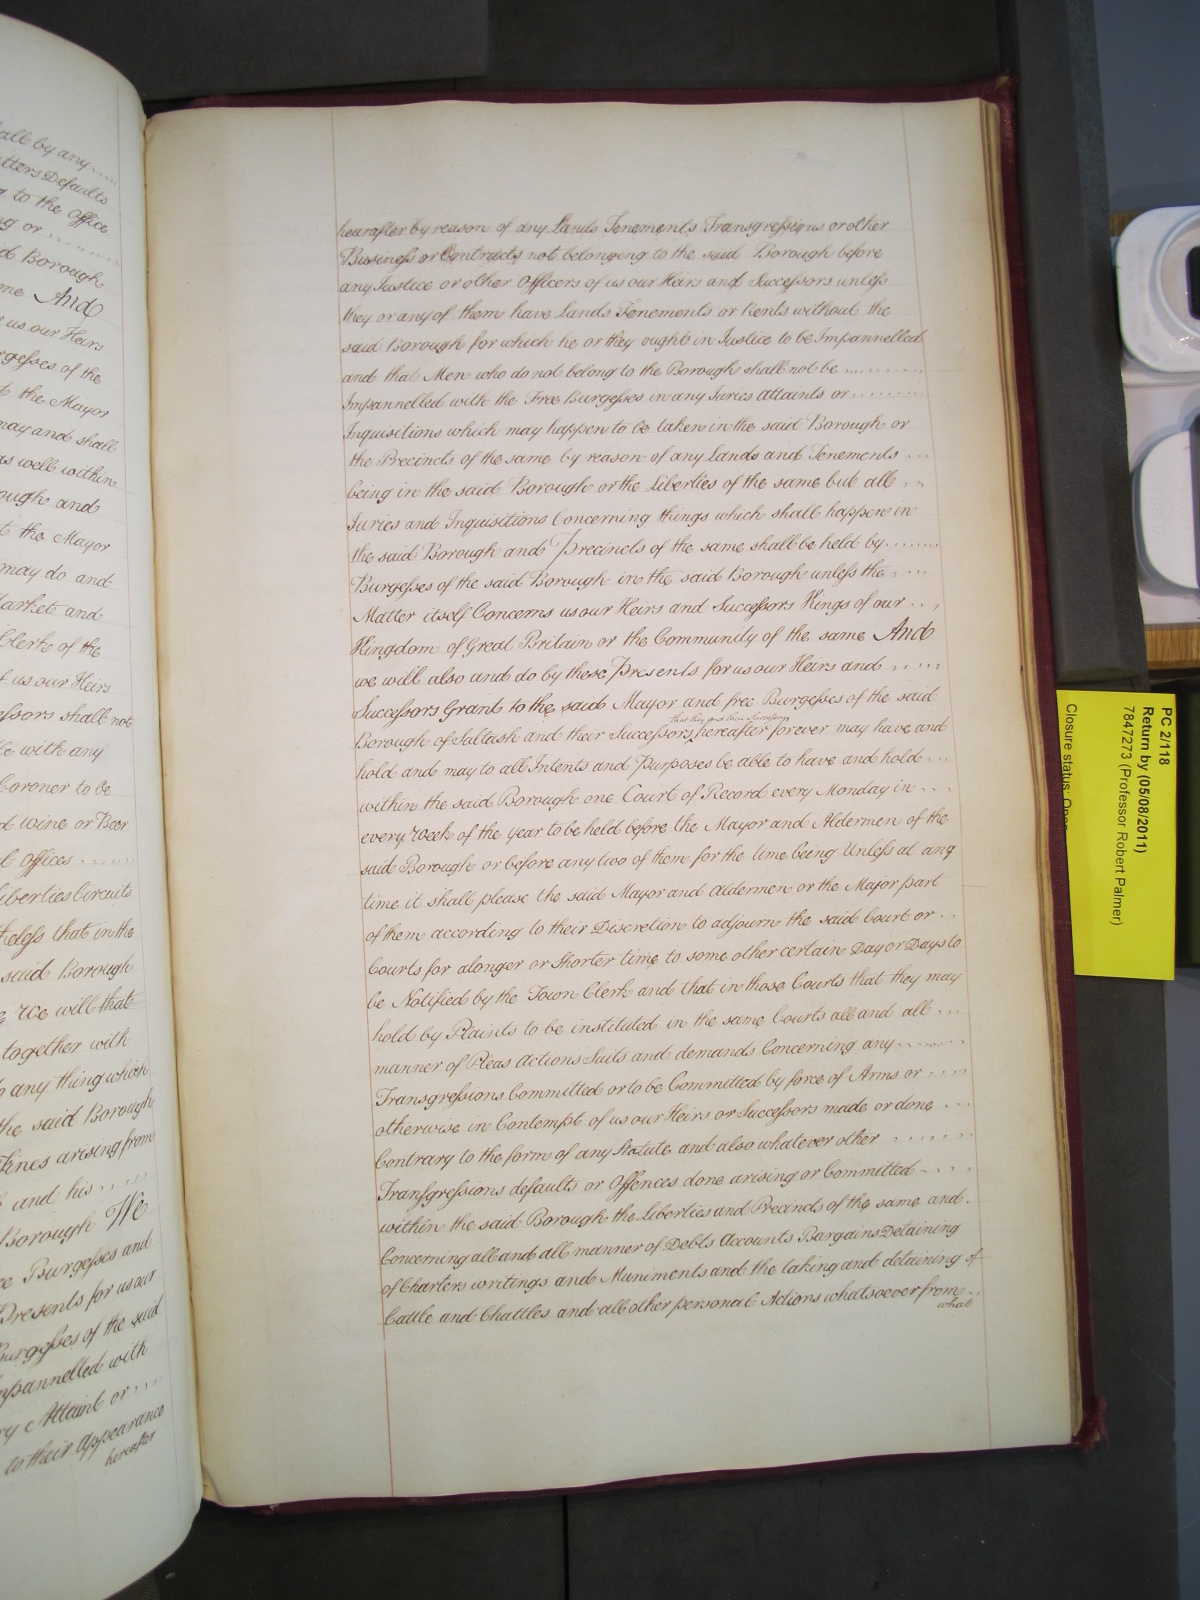 all by any ....
tters Defaults
g to the Office
ng or .........
d Borough
me And
r us our Heirs
rgesses of the
t the Mayor
may and shall
as well within
ough and
t the Mayor
may do and
Market and
Clerk of the
f us our Heirs
essors shall not
with any
Coroner to be
d wine or Beer
l Offices ......
iberties Circuits
heless that in the
said Borough
We will that
together with
any thing which
the said Borough
Fines arising from
and his .....
Borough We
ee Burgesses and
Presents for us our
Burgesses of the said
mpannelled with
ry Attaint or ...
to their Appearance
hereafter
hearafter by reason of any Lands Tenements Transgressions or other
Business or Contracts not belonging to the said Borough before
any Justice or other Officers of us our Heirs and Successors unless
they or any of them have Lands Tenements or Rents without the
said Borough for which he or they ought in Justice to be Impannelled
and that Men who do not belong to the Borough shall not be ..........
Impannelled with the Free Burgesses in any Juries Attaints or ..........
Inquisitions which may happen to be taken in the said Borough or
the Precincts of the same by reason of any Lands and Tenements ...
being in the said Borough or the Liberties of the same but all ..
Juries and Inquisitions Concerning things which shall happen in
the said Borough and Precincts of the same shall be held by ........
Burgesses of the said Borough in the said Borough unless the ....
Matter itself Concerns us our Heirs and Successors Kings of our ...
Kingdom of Great Britain or the Community of the same And
we will also and do by these Presents for us our Heirs and .....
Successors Grant to the said Mayor and free Burgesses of the said
that they and their Successors
Borough of Saltash and their Successors hereafter forever may have and
hold and may to all Intents and Purposes be able to have and hold ...
within the said Borough one Court of Record every Monday in ...
every Week of the year to be held before the Mayor and Aldermen of the
said Borough or before any two of them for the time being Unless at any
time it shall please the said Mayor and Aldermen or the Major part
of them according to their Discretion to adjourn the said Court or ..
Courts for a longer or shorter time to some other certain Day or Days to
be Notified by the Town Clerk and that in those Courts that they may
hold by Plaints to be instituted in the same Courts all and all ...
manner of Pleas Actions Suits and demands Concerning any .......
Transgressions Committed or to be Committed by force of Arms or ....
otherwise in Contempt of us our Heirs or Successors made or done ...
Contrary to the form of any Statute and also whatever other ......
Transgressions defaults or Offences done arising or Committed ....
within the said Borough the Liberties and Precincts of the same and .
Concerning all and all manner of Debts Accounts Bargains Detaining
of Charters writings and Muniments and the taking and detaining of
Cattle and Chattles and all other personal Actions whatsoever from ..
what
PC 2/118
Return by (05/08/2011)
7847273 (Professor Robert Palmer)
Closure status: Open